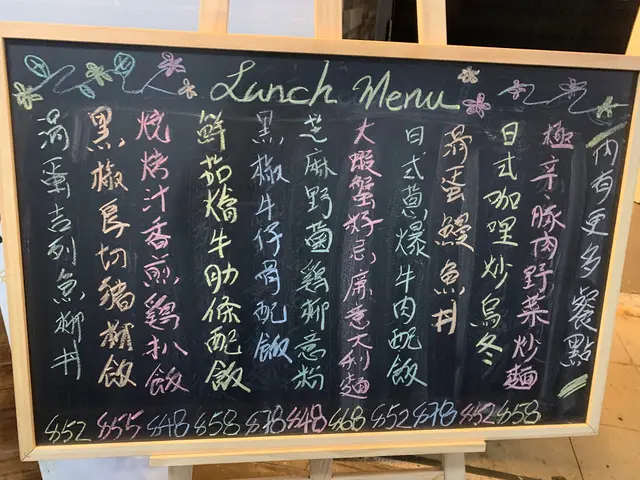 Lunch Menu
內有更多餐點
極辛豚肉野菜炒麵
日式咖哩炒烏冬
滑蛋鰻魚丼
日式蔥爆牛肉配飯
大蝦蟹籽忌廉意大利麵
芝麻野菌雞柳意粉
黑椒牛仔骨配飯
鮮茄燴牛肋條配飯
燒烤汁香煎雞扒飯
黑椒厚切豬飯
滑蛋吉列魚柳丼
$52 $55 $48 $58 $78 $48 $68 $52 $78 $52 $58